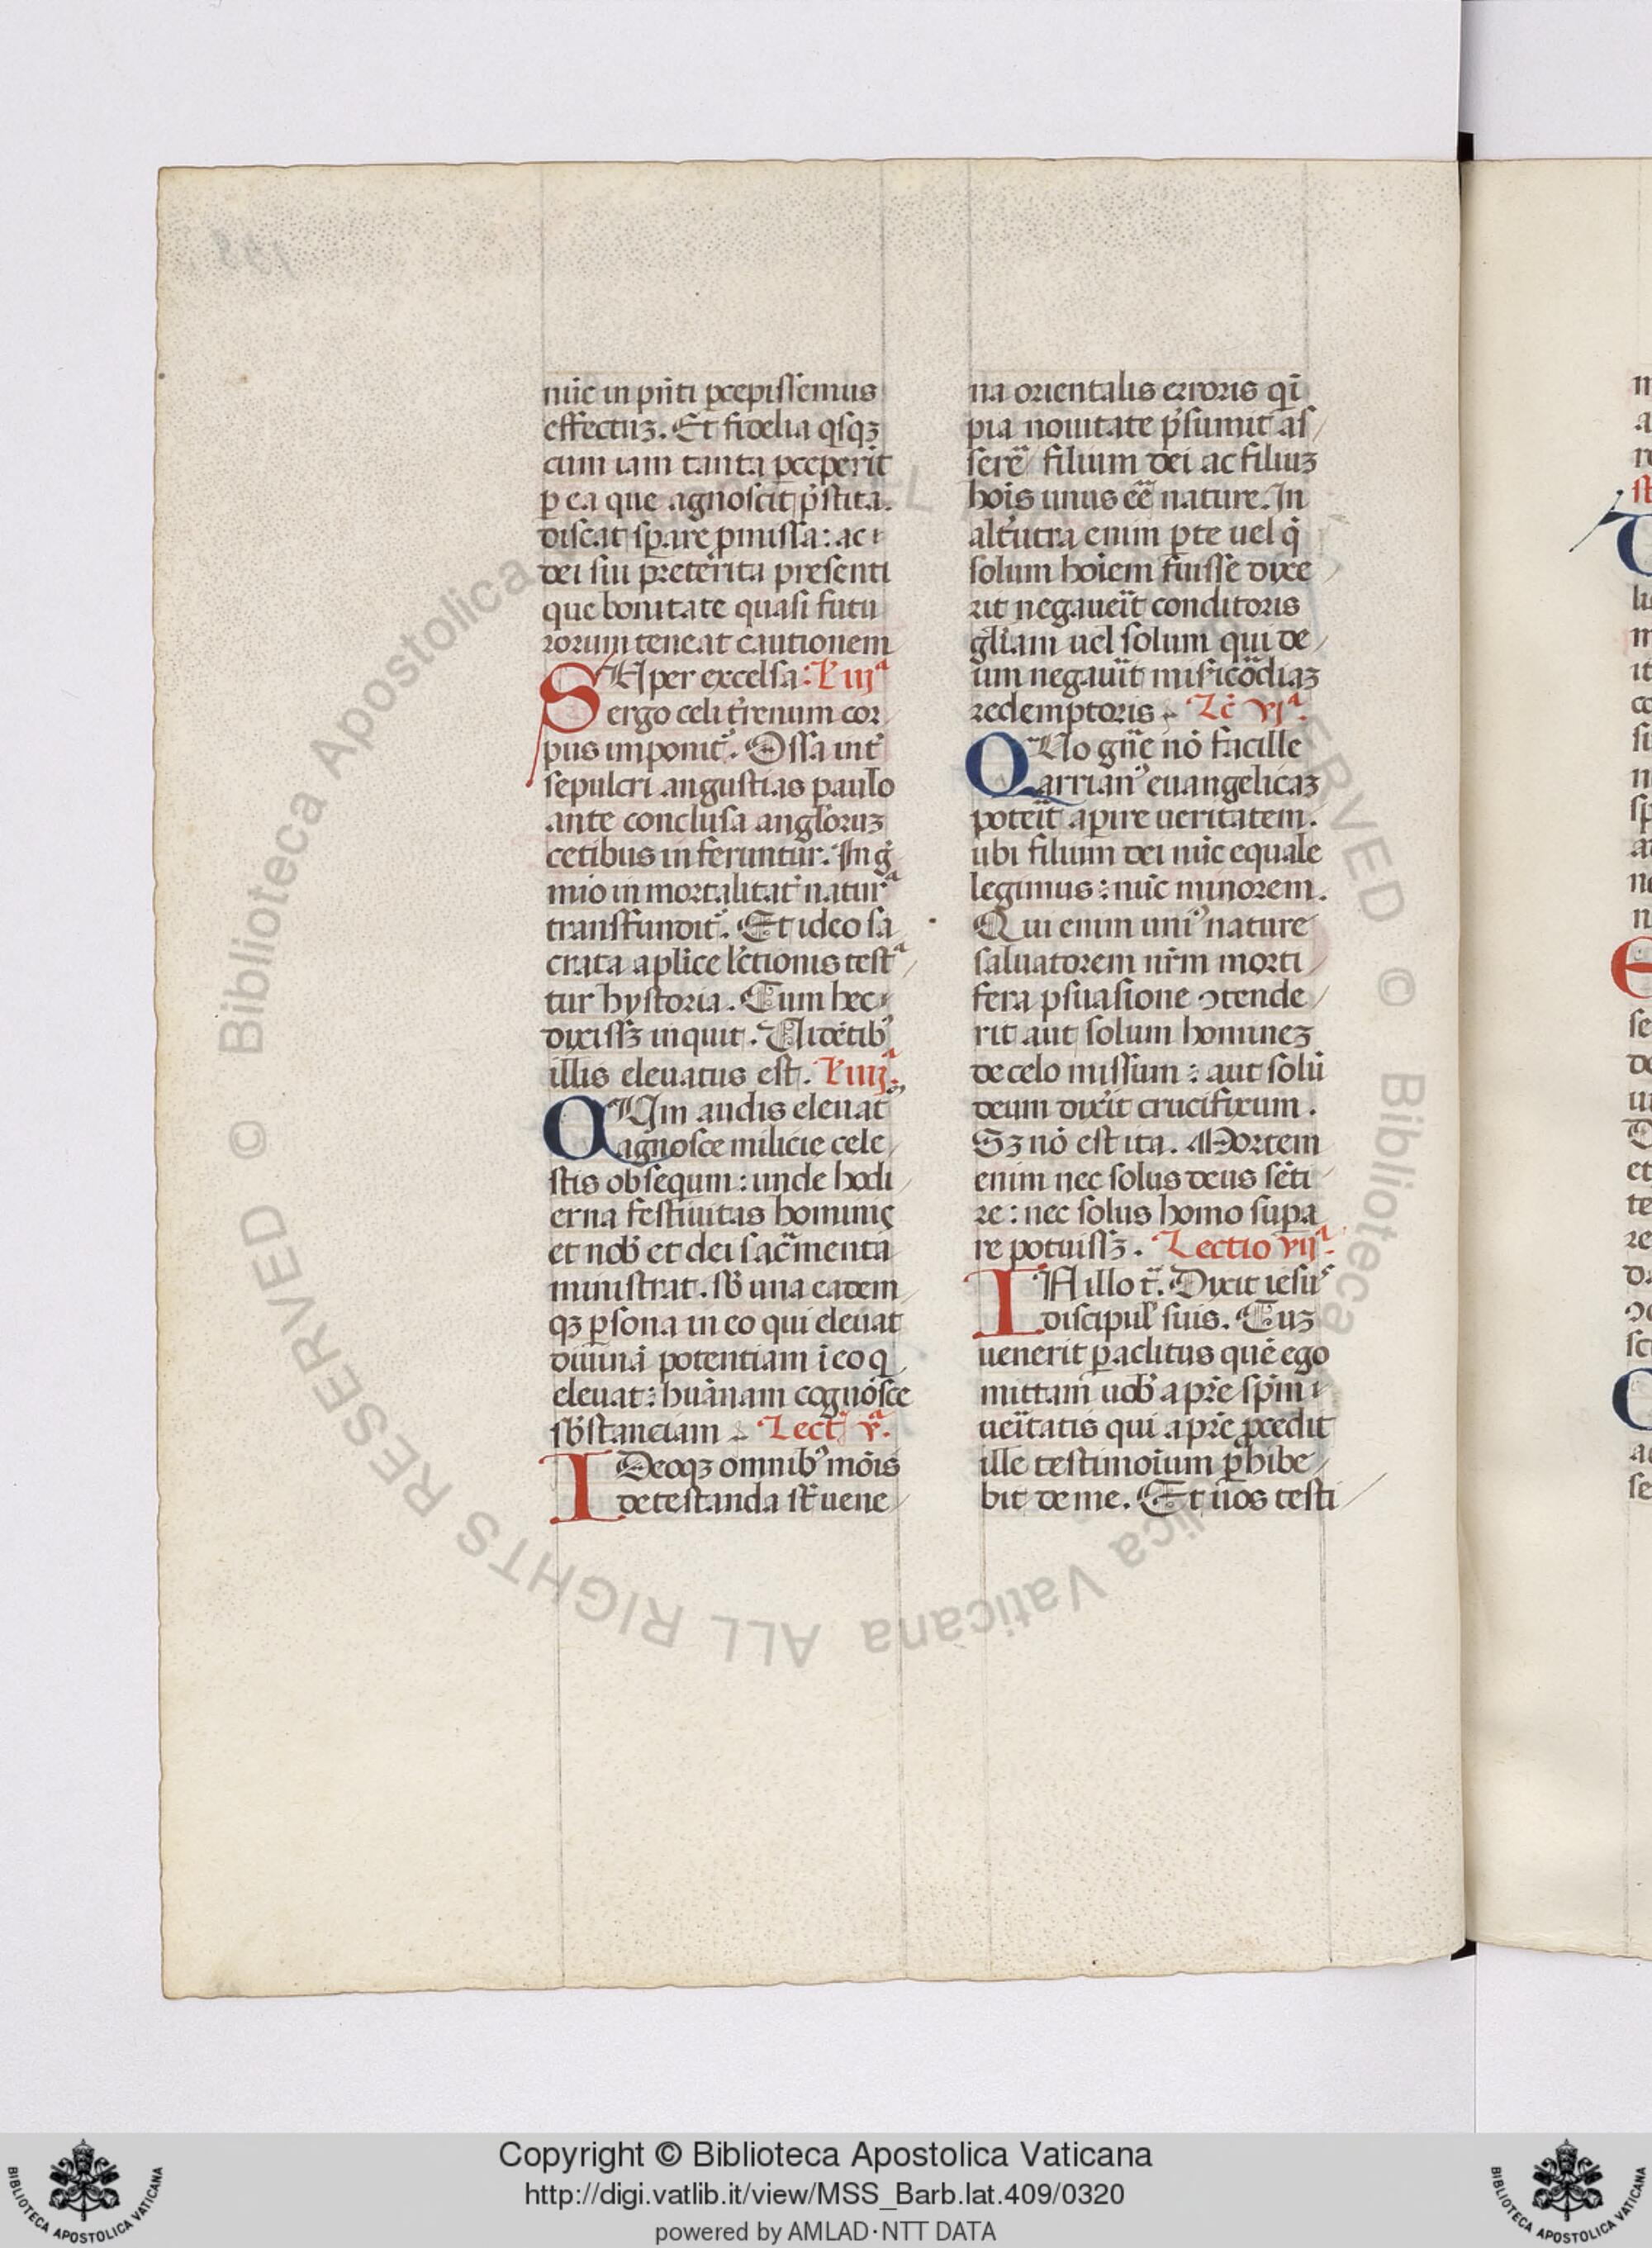 nūc in pñti p̱cepissemus
effectuȝ. Et fidelia qͥsqȝ
cum iam tanta p̱ceperit
p̱ ea que agnoscit p̄stita.
discat sp̱are p̱missa : ac
dei sui preterita presenti
que bonitate quasi futu
rorum teneat cautionem
SUper excelsa : L' iijª
ergo celi t'renum cor
pus imponit'. Ossa int'
sepulcri angustias paulo
ante conclusa angl'oruȝ
cetibus in feruntur. In g'
mio in mortalitat' naturª
transfundit'. Et ideo sa
crata ap̄lice l'ctionis testª
tur hystoria. Cum hec
dixissȝ inquit. Uidētibꝰ
illis eleuatus est. L' iiijª
QUm audis eleuat
agnosce milicie cele
stis obsequm : unde hodi
erna festiuitas hominiȩ
et nob̄ et dei sac̄menta
ministrat. sb̄ una eadem
qȝ p̱sona in eo qui eleuat
diuinā potentiam ī eo q
eleuat : huānam cognosce
sb̄stanciam Lect' vª.
IDeoqȝ omnibꝰ mōis
detestanda st' uene
na orientalis erroris qī
pia nouitate p̄sumit as
serē filium dei ac filiuȝ
hoīs unus eē nature. In
alt'utra enim p̱te uel qͥ
solum hoīem fuisse dixe
rit negaueīt conditoris
gl'iam uel solum qui de
um negauīt mis'icōdiaȝ
redemptoris Lc̄ vjª.
QUo gn̄e nō facille
arrianꝰ euangelicaȝ
poteīt ap̱ire ueritatem.
ubi filium dei nūc equale
legimus : nūc minorem.
Qui enim uniꝰ nature
saluatorem nr̄m morti
fera p̱suasione ɔtende
rit aut solum homineȝ
de celo missum : aut solū
deum dix'it crucifixum.
Sȝ nō est ita. Mortem
enim nec solus deus sēti
re : nec solus homo sup̱a
re potuissȝ. Lectio vijª.
IN illo t̄. Dixit iesus
discipul' suis. Cuȝ
uenerit p̱aclitus quē ego
mittam uob̄ a pr̄e sp̄m
ueīitatis qui a pr̄e p̱cedit
ille testimoīum p̱hibe
bit de me. Et uos testi
Copyright © Biblioteca Apostolica Vaticana
http://digi.vatlib.it/view/MSS_Barb.lat.409/0320
powered by AMLAD·NTT DATA
BIBLIOTECA APOSTOLICA VATICANA
BIBLIOTECA APOSTOLICA VATICANA
© Biblioteca Apostolica Vaticana ALL RIGHTS RESERVED